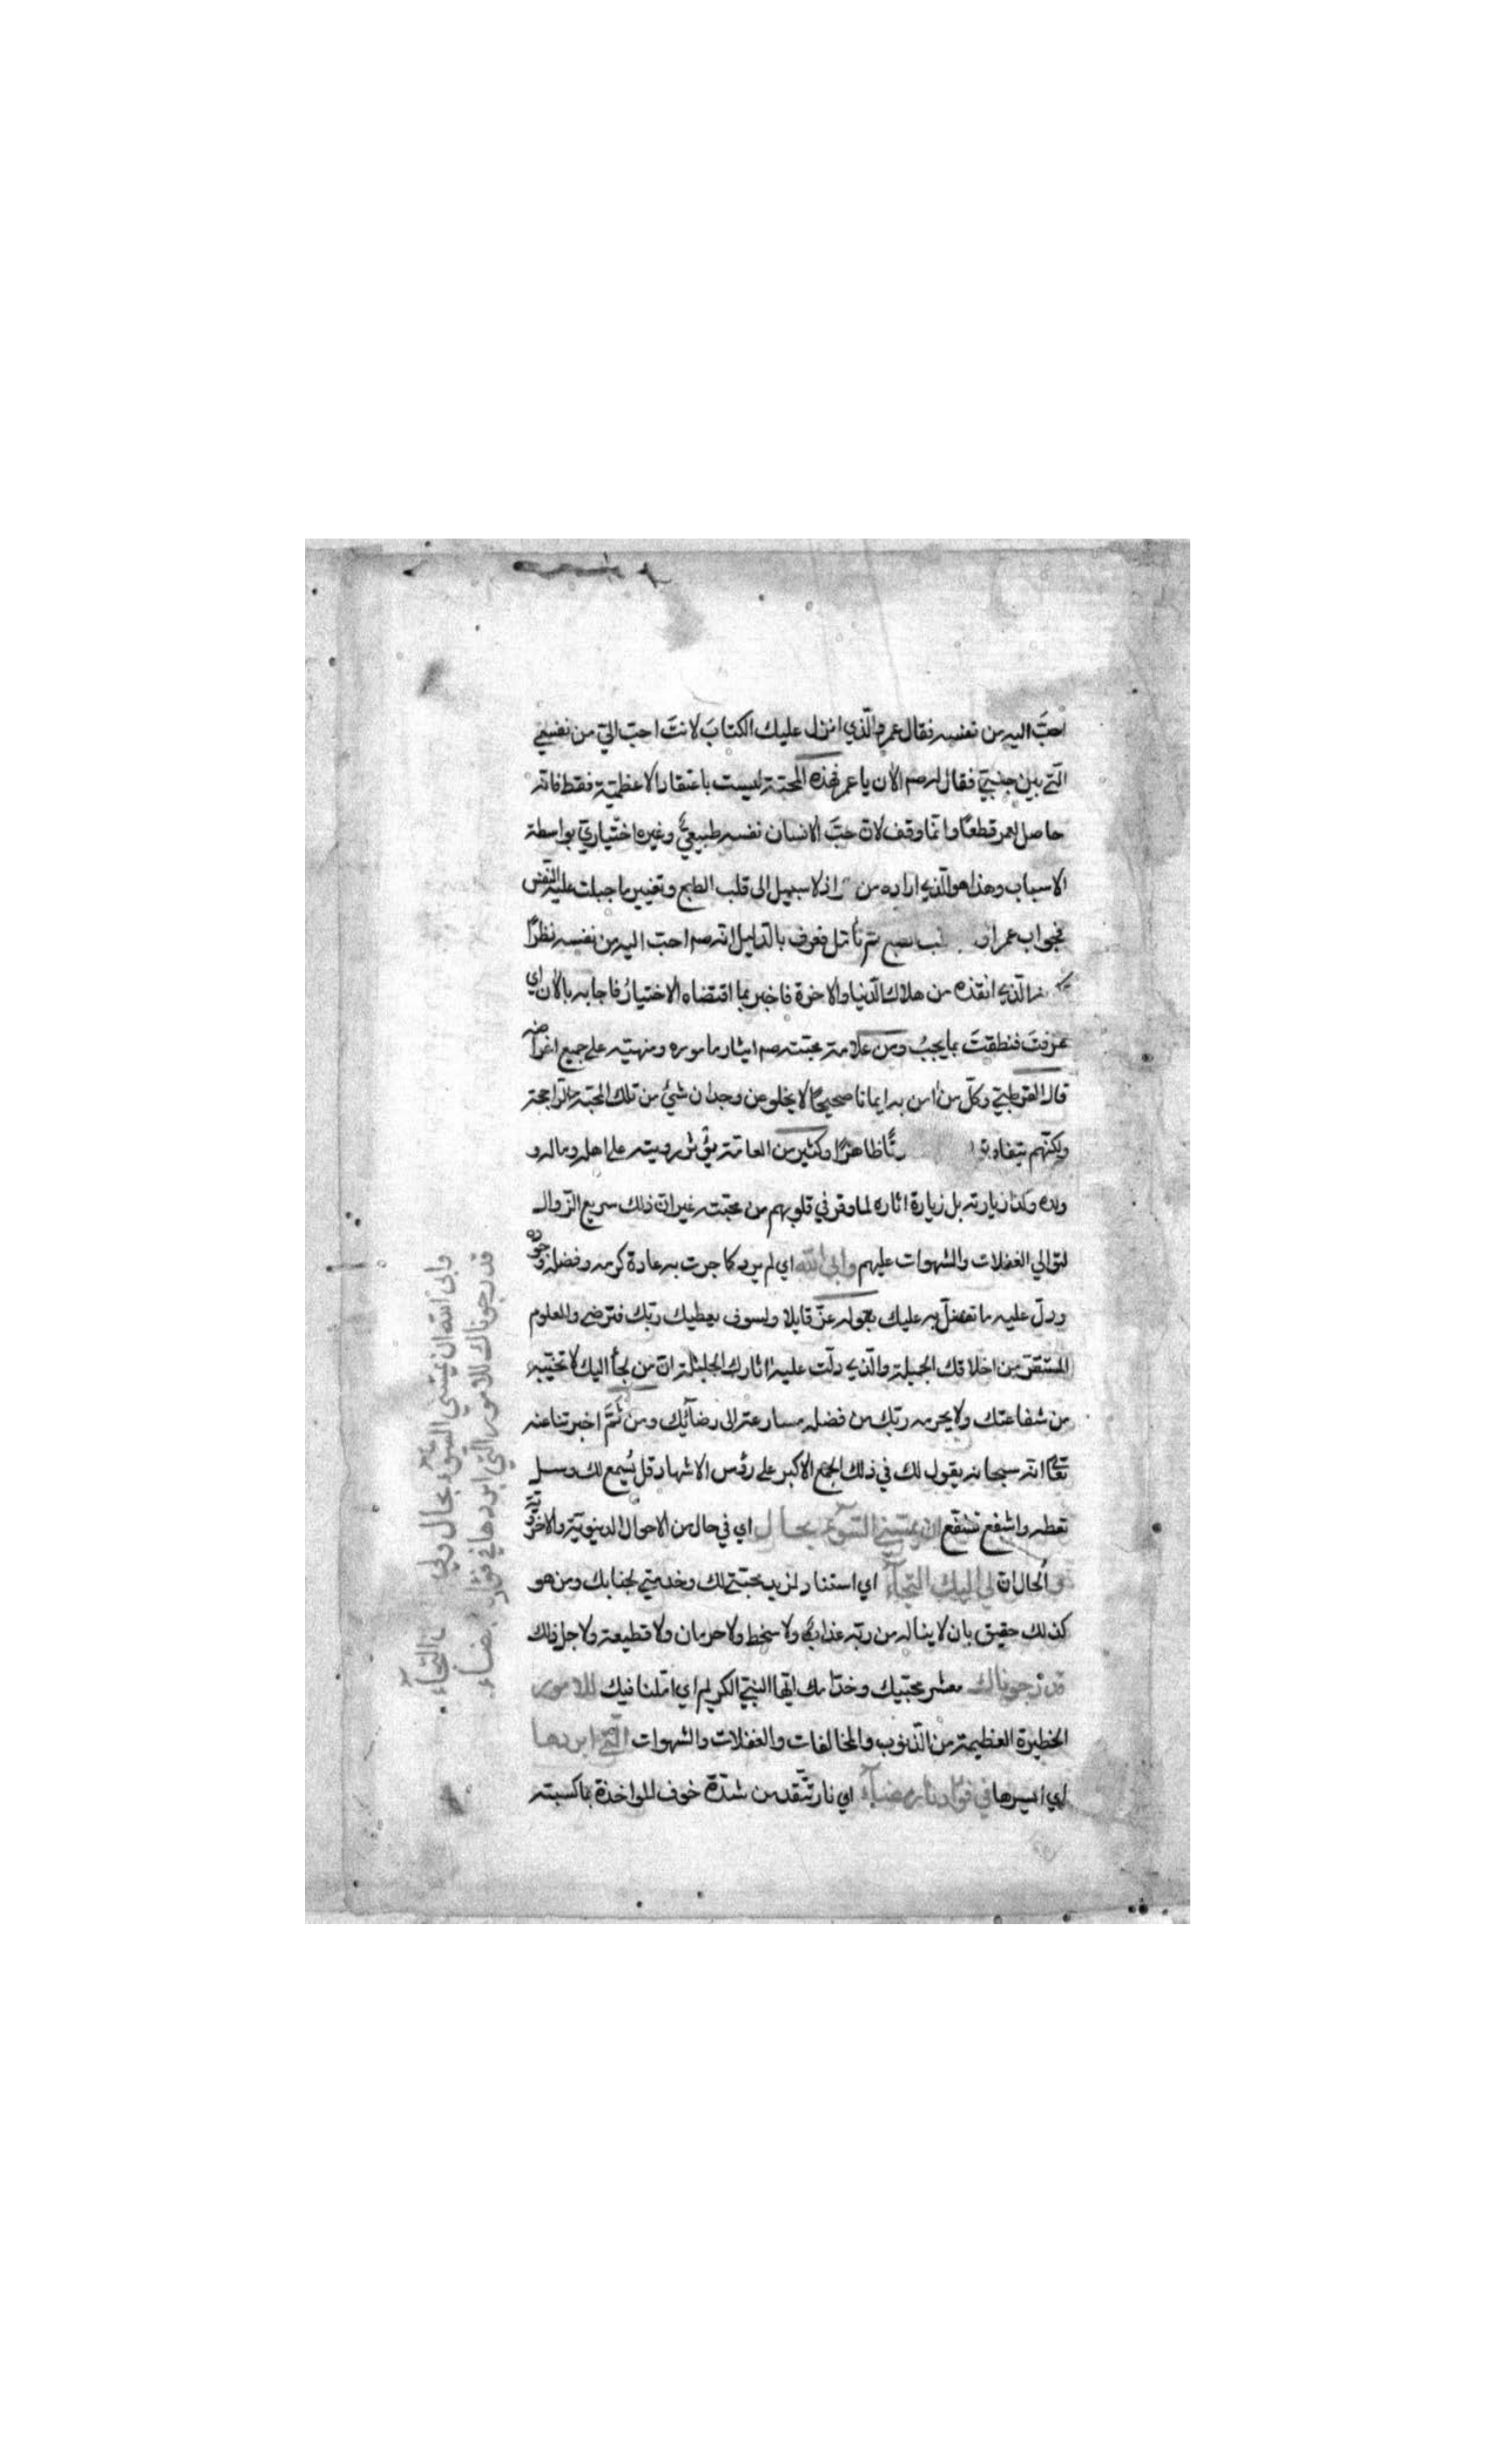 احبَّ اليه من نفسه فقال عمر والّذي انزل عليك الكتابَ لانتَ احبّ اليّ من نفسي
الّتي بين جنبيّ فقال له صم الان يا عمر فهذه المحبّة ليست باعتقاد الاعظميّة فقط فانّه
حاصل لعمر قطعًا وانّما وقف لانّ حبَّ الانسان نفسه طبيعيٌّ وغيره اختياريّ بواسطة
الاسباب وهذا هو الّذي اراده من اذ لا سبيل الى قلب الطبع وتغيير ما جبلت عليه النّفس
فجواب عمر او بحسب طبع ثم تأمّل فعرف بالدّليل انّه صم احبّ اليه من نفسه نظرًا
الّذي انقذه من هلاك الدّنيا والاخرة فاخبر بما اقتضاه الاختيارُ فاجابه بالان اي
عرفتَ فنطقتَ بما يجبُ ومن علامة محبّته صم ايثار ماموره ومنهيّه على جميع اغراضه
قال القرطبيّ وكلّ من امن به ايمانا صحيحًا لا يخلو عن وجدان شئ من تلك المحبّة الرّاجحة
ولكنّهم يتفاوتون ظاهرًا وكثير من العامّة يؤثر رويته على اهله وماله و
ولده وكذا زيارته بل زيارة اثاره لما وقر في قلوبهم من محبّته غير انّ ذلك سريع الزّوال
لتوالي الغفلات والشهوات عليهم وابى اللّه اي لم يرد كما جرت به عادة كرمه وفضله وجوده
ودلّ عليه ما تفضّل به عليك بقوله عزّ قايلا ولسوف يعطيك ربّك فترضى والمعلوم
المستقرّ من اخلاقك الجميلة والّذي دلّت عليه اثارك الجليلة انّ من لجأ اليك لا تخيّبه
من شفاعتك ولا يحرمه ربّك من فضله مسارعة الى رضائك ومن ثمَّ اخبرتنا عنه
تعالى انّه سبحانه يقول لك في ذلك الجمع الاكبر على رؤس الاشهاد قل يُسمع لك وسل
تعطه واشفع تشفّع ان يمسّني السّوء بحال اي في حال من الاحوال الدينويّة والاخرويّة
و الحال ان لي اليك التجاء اي استناد لمزيد محبّتي لك وخدمتي لجنابك ومن هو
كذلك حقيق بان لا يناله من ربّه عذابٌ ولا سخط ولا حرمان ولا قطيعة ولا جل ذلك
قد رجوناك معشر محبّيك وخدّامك ايّها النبيّ الكريم اي امّلنا فيك للامور
الخطيرة العظيمة من الذّنوب والمخالفات والغفلات والشهوات الّتي ابردها
اي ايسرها في فؤادنا رمضاء اي نار تتّقد من شدّة خوف المواخذة بما كسبته
وابى الله ان يمسّني السّوء بحال ولي التجاء
قد رجوناك للامور الّتي ابردها في فؤاد رمضاء